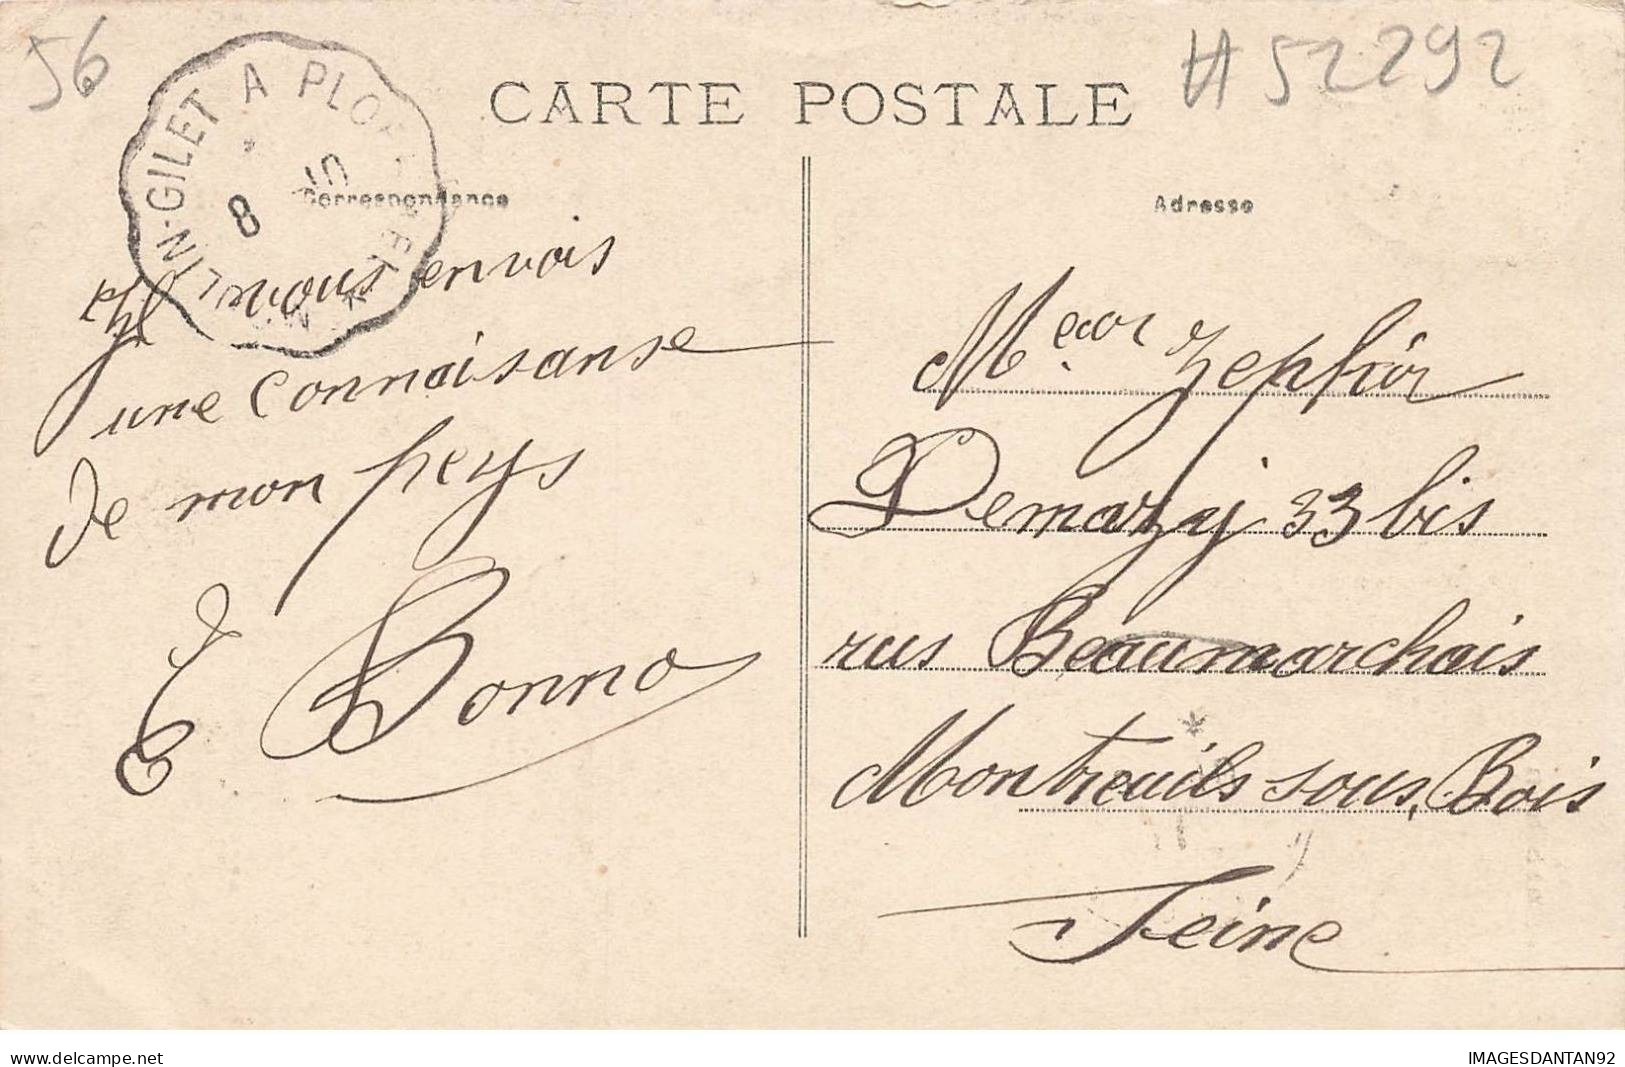 56
#52292
CARTE POSTALE
LIN-GILET A PLO
8
Correspondance
Adresse
vous envois
une connaisanse
de mon peys
E Bonno
Zephir
Demazy 33 bis
rus Beaumarchais
Montreuils sous Bois
Seine
delcampe.net
IMAGESDANTAN92